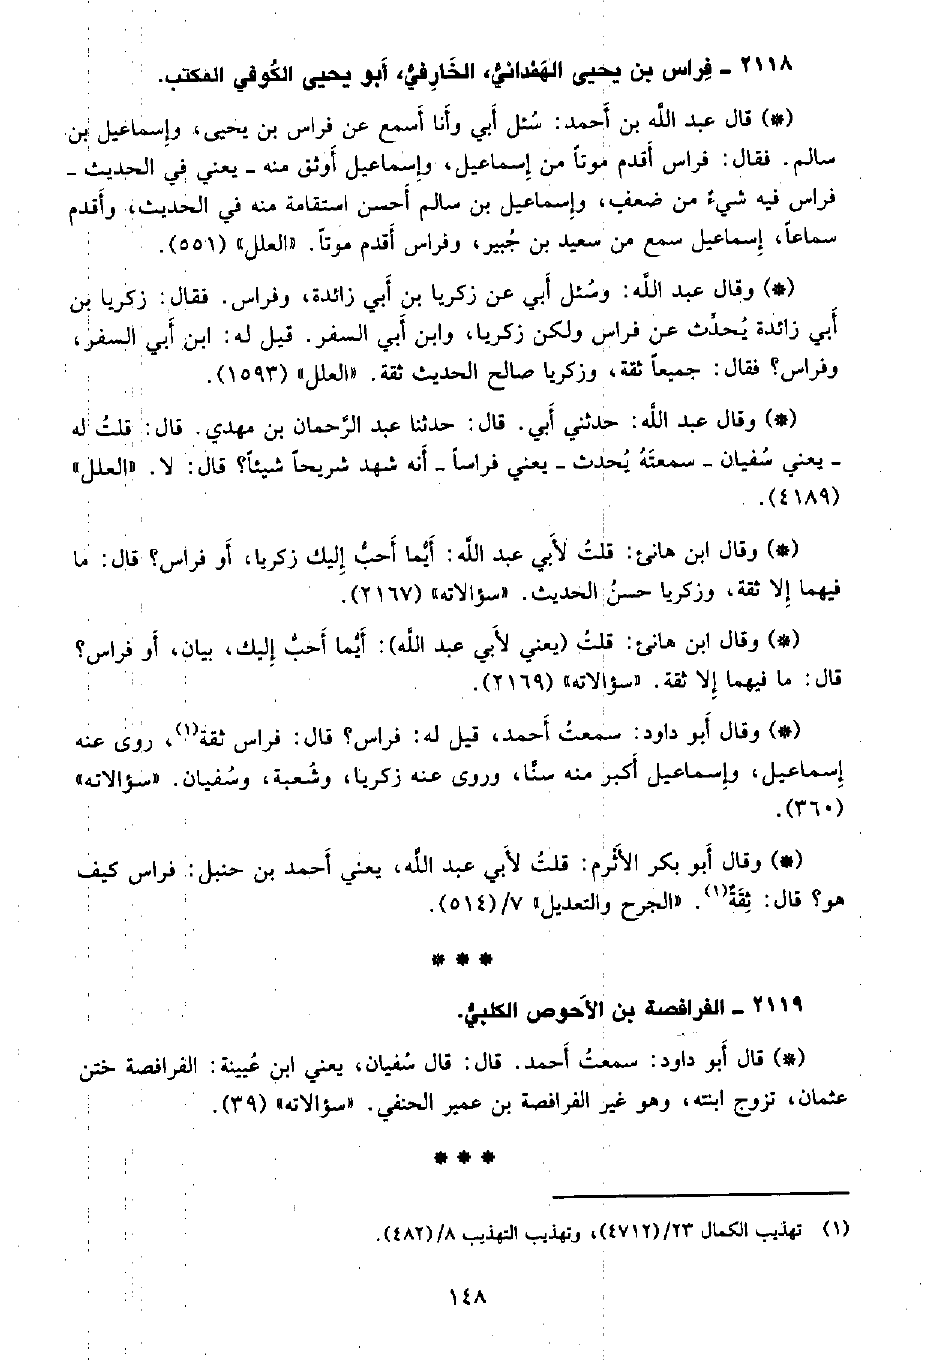 ٢١١٨ ـ فِراس بن يحيى الهَمْدانيُّ، الخَارِفيُّ، أبو يحيى الكُوفي المكتب.
(*) قال عبد الله بن أحمد: سُئل أبي وأنا أسمع عن فراس بن يحيى، وإسماعيل بن
سالم. فقال: فراس أقدم موتاً من إسماعيل، وإسماعيل أوثق منه ـ يعني في الحديث ـ
فراس فيه شيءٌ من ضعف، وإسماعيل بن سالم أحسن استقامة منه في الحديث، وأقدم
سماعاً، إسماعيل سمع من سعيد بن جُبير، وفراس أقدم موتاً. «العلل» (٥٥١).
(*) وقال عبد الله: وسُئل أبي عن زكريا بن أبي زائدة، وفراس. فقال: زكريا بن
أبي زائدة يُحدِّث عن فراس ولكن زكريا، وابن أبي السفر. قيل له: ابن أبي السفر،
وفراس؟ فقال: جميعاً ثقة، وزكريا صالح الحديث ثقة. «العلل» (١٥٩٣).
(*) وقال عبد الله: حدثني أبي. قال: حدثنا عبد الرَّحمان بن مهدي. قال: قلتُ له
ـ يعني سُفيان ـ سمعتَهُ يُحدث ـ يعني فراساً ـ أنه شهد شريحاً شيئاً؟ قال: لا. «العلل»
(٤١٨٩).
(*) وقال ابن هانئ: قلتُ لأبي عبد الله: أيُّما أحبُّ إليك زكريا، أو فراس؟ قال: ما
فيهما إلا ثقة، وزكريا حسنُ الحديث. «سؤالاته» (٢١٦٧).
(*) وقال ابن هانئ: قلتُ (يعني لأبي عبد الله): أيُّما أحبُّ إليك، بيان، أو فراس؟
قال: ما فيهما إلا ثقة. «سؤالاته» (٢١٦٩).
(*) وقال أبو داود: سمعتُ أحمد، قيل له: فراس؟ قال: فراس ثقة(١)، روى عنه
إسماعيل، وإسماعيل أكبر منه سنًّا، وروى عنه زكريا، وشُعبة، وسُفيان. «سؤالاته»
(٣٦٠).
(*) وقال أبو بكر الأثْرم: قلتُ لأبي عبد الله، يعني أحمد بن حنبل: فراس كيف
هو؟ قال: ثِقَةٌ(١). «الجرح والتعديل» ٧/(٥١٤).
* * *
٢١١٩ ـ الفرافصة بن الأحوص الكلبيُّ.
(*) قال أبو داود: سمعتُ أحمد. قال: قال سُفيان، يعني ابن عُيينة: الفرافصة ختن
عثمان، تزوج ابنته، وهو غير الفرافصة بن عمير الحنفي. «سؤالاته» (٣٩).
* * *
(١) تهذيب الكمال ٢٣/(٤٧١٢)، وتهذيب التهذيب ٨/(٤٨٢).
١٤٨